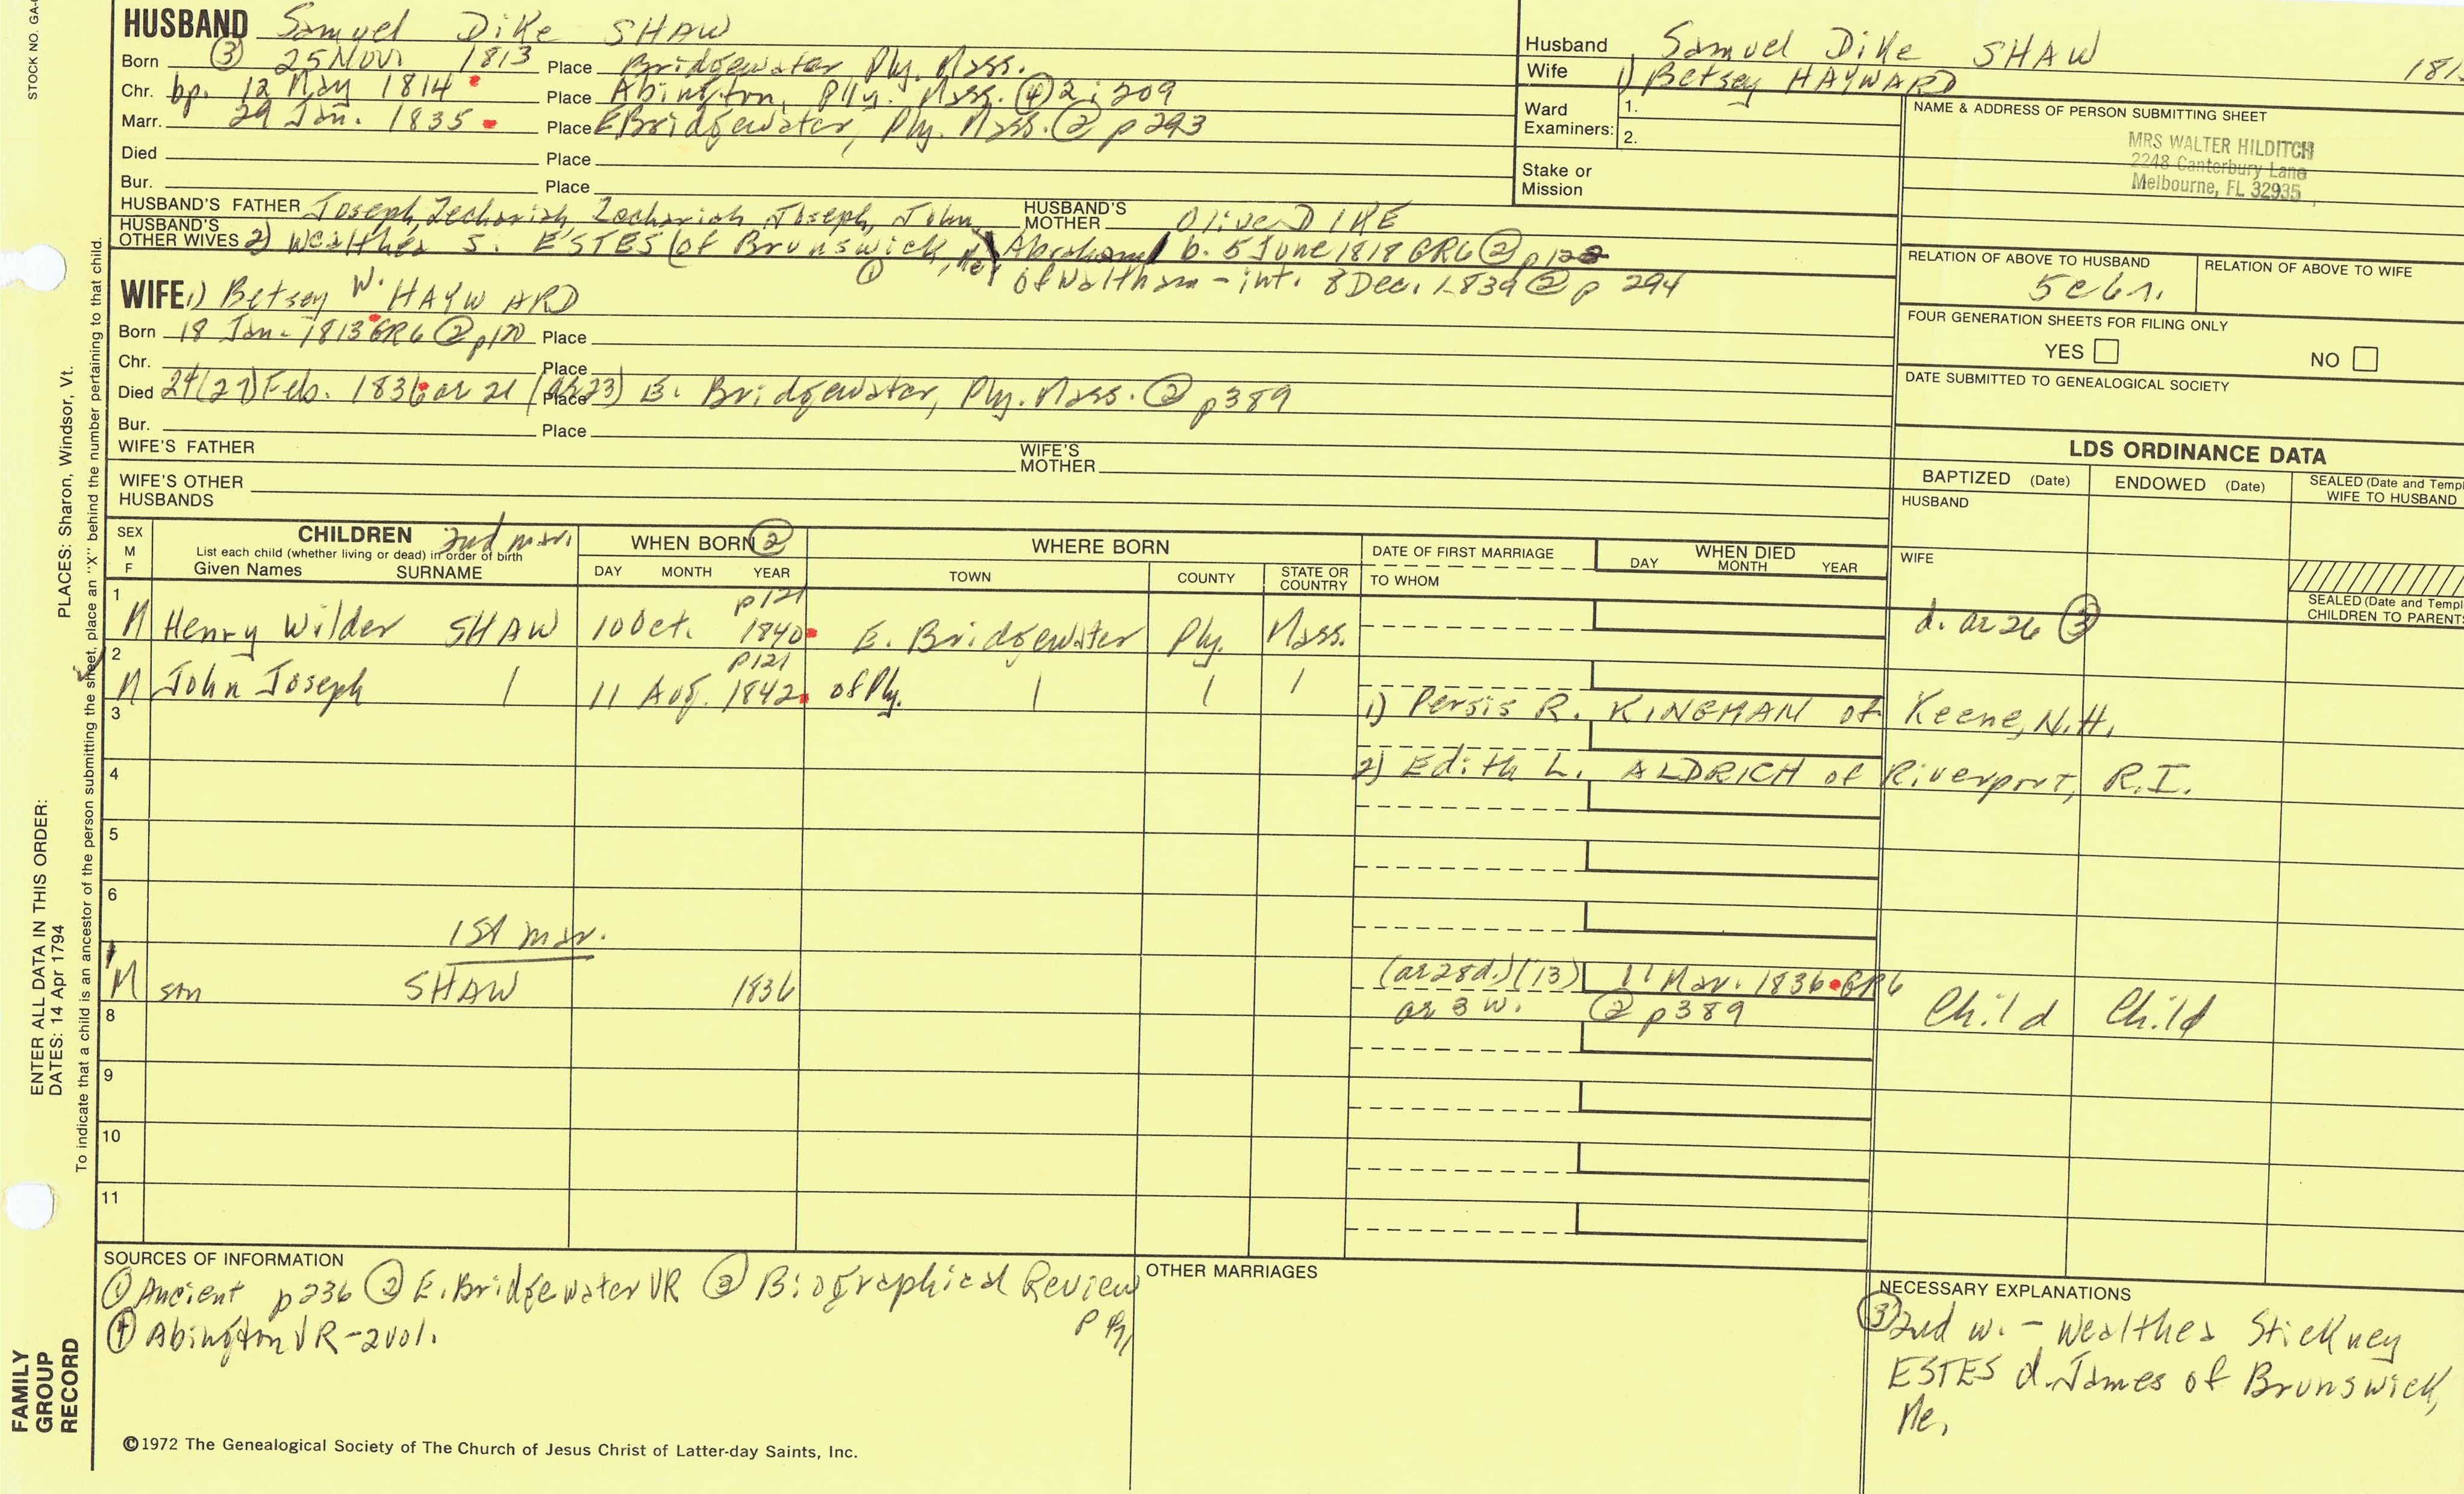 STOCK NO. GA
HUSBAND Samuel Dike SHAW
Born ③ 25 Nov. 1813 Place Bridgewater Ply. Mass.
Chr. bp. 12 May 1814 Place Abington, Ply. Mass. ④ 2:209
Marr. 29 Jan. 1835 Place E Bridgewater, Ply. Mass. ② p 293
Died Place
Bur. Place
HUSBAND'S FATHER Joseph, Zechariah, Zechariah Joseph, John, HUSBAND'S MOTHER Olive DIKE
HUSBAND'S OTHER WIVES 2) Wealthea S. ESTES (of Brunswick, Me) Abraham b. 5 June 1818 GR6 ② p 122
① of Waltham - int. 8 Dec. 1839 ② p 294
WIFE 1) Betsey W. HAYWARD
Born 18 Jan. 1813 GR6 ② p120 Place
Chr. Place
Died 24(27) Feb. 1836 ae 21 (ae 23) Place E. Bridgewater, Ply. Mass. ② p389
Bur. Place
WIFE'S FATHER WIFE'S MOTHER
WIFE'S OTHER HUSBANDS
Husband Samuel Dike SHAW 181
Wife 1) Betsey HAYWARD
Ward Examiners: 1.
2.
Stake or Mission
NAME & ADDRESS OF PERSON SUBMITTING SHEET
MRS WALTER HILDITCH
2248 Canterbury Lane
Melbourne, FL 32935
RELATION OF ABOVE TO HUSBAND RELATION OF ABOVE TO WIFE
5c6r.
FOUR GENERATION SHEETS FOR FILING ONLY
YES NO
DATE SUBMITTED TO GENEALOGICAL SOCIETY
LDS ORDINANCE DATA
BAPTIZED (Date) ENDOWED (Date) SEALED (Date and Templ
WIFE TO HUSBAND
HUSBAND
WIFE
SEALED (Date and Templ
CHILDREN TO PARENTS
SEX M F
CHILDREN 2nd mar.
List each child (whether living or dead) in order of birth
Given Names SURNAME
WHEN BORN ②
DAY MONTH YEAR
WHERE BORN
TOWN COUNTY STATE OR COUNTRY
DATE OF FIRST MARRIAGE
TO WHOM
WHEN DIED
DAY MONTH YEAR
1 p121
M Henry Wilder SHAW 10 Oct. 1840 E. Bridgewater Ply. Mass. d. ae 26 ③
2 p121
M John Joseph | 11 Aug. 1842 of Ply. | | |
3 1) Persis R. KINGMAN of Keene, N.H.
4 2) Edith L. ALDRICH of Riverport, R.I.
5
6
1st mar.
M son SHAW 1836 (ae 28d.) (13) 11 Mar. 1836 GR6
8 ae 3 w. ② p389 Child Child
9
10
11
SOURCES OF INFORMATION
① Ancient p236 ② E. Bridgewater VR ③ Biographical Review
④ Abington VR - 2 vol.
OTHER MARRIAGES
NECESSARY EXPLANATIONS
③ 2nd w. - Wealthea Stickney
ESTES d. James of Brunswick,
Me.
©1972 The Genealogical Society of The Church of Jesus Christ of Latter-day Saints, Inc.
FAMILY GROUP RECORD
ENTER ALL DATA IN THIS ORDER:
DATES: 14 Apr 1794
PLACES: Sharon, Windsor, Vt.
To indicate that a child is an ancestor of the person submitting the sheet, place an "X" behind the number pertaining to that child.